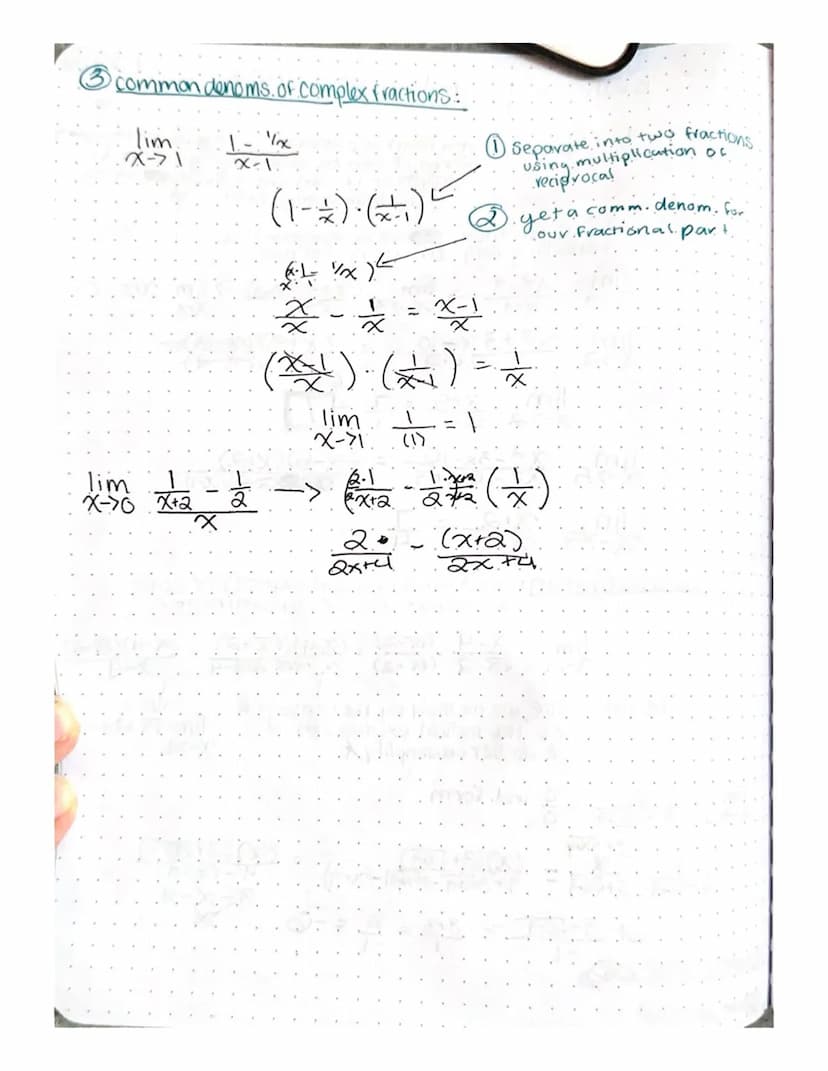 ③ common denoms. of complex fractions:
lim x→1 (1 - 1/x)/(x-1)
① Separate into two fractions
using multiplication of
reciprocal
(1 - 1/x) · (1/(x-1))
② get a comm. denom. for
our fractional part
(x·1/x·1 - 1/x)
x/x - 1/x = (x-1)/x
((x-1)/x) · (1/(x-1)) = 1/x
lim x→1 1/(1) = 1
lim x→0 (1/(x+2) - 1/2)/x → (2·1/2·x+2 - 1·x+2/2·x+2 (1/x)
2·/(2x+4) - (x+2)/(2x+4)